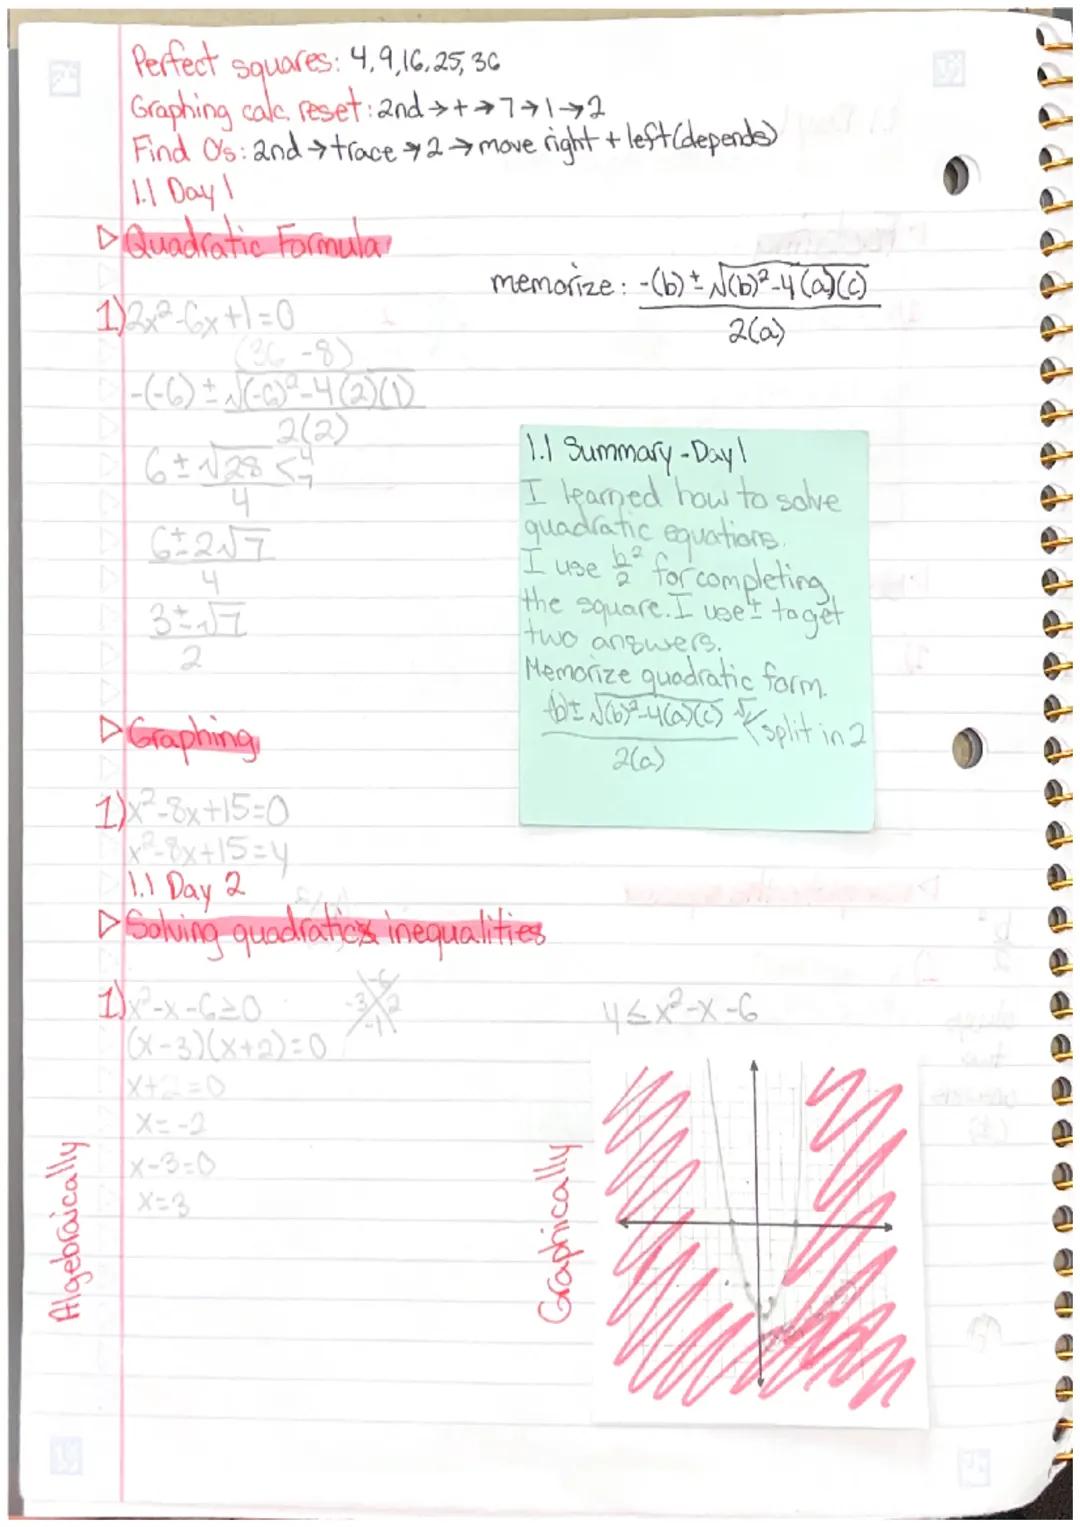 Perfect squares: 4,9,16,25,36
Graphing calc. reset: 2nd→+→7→1→2
Find 0's: 2nd→trace→2→move right + left (depends)
1.1 Day 1
▷ Quadratic Formula
memorize: -(b) ± √(b)²-4(a)(c)
2(a)
1) 2x²-6x+1=0
(36-8)
-(-6) ± √(-6)²-4(2)(1)
2(2)
6 ± √28 < 4 7
4
6 ± 2√7
4
3 ± √7
2
1.1 Summary - Day 1
I learned how to solve
quadratic equations.
I use b²/2 for completing
the square. I use ± to get
two answers.
Memorize quadratic form.
-(b) ± √(b)²-4(a)(c)
2(a)
split in 2
▷ Graphing
1) x²-8x+15=0
x²-8x+15=y
1.1 Day 2
▷ Solving quadratics inequalities
1) x²-x-6≥0
-6
-3 2
-1
(x-3)(x+2)=0
x+2=0
x=-2
x-3=0
x=3
Algebraically
y≤x²-x-6
Graphically